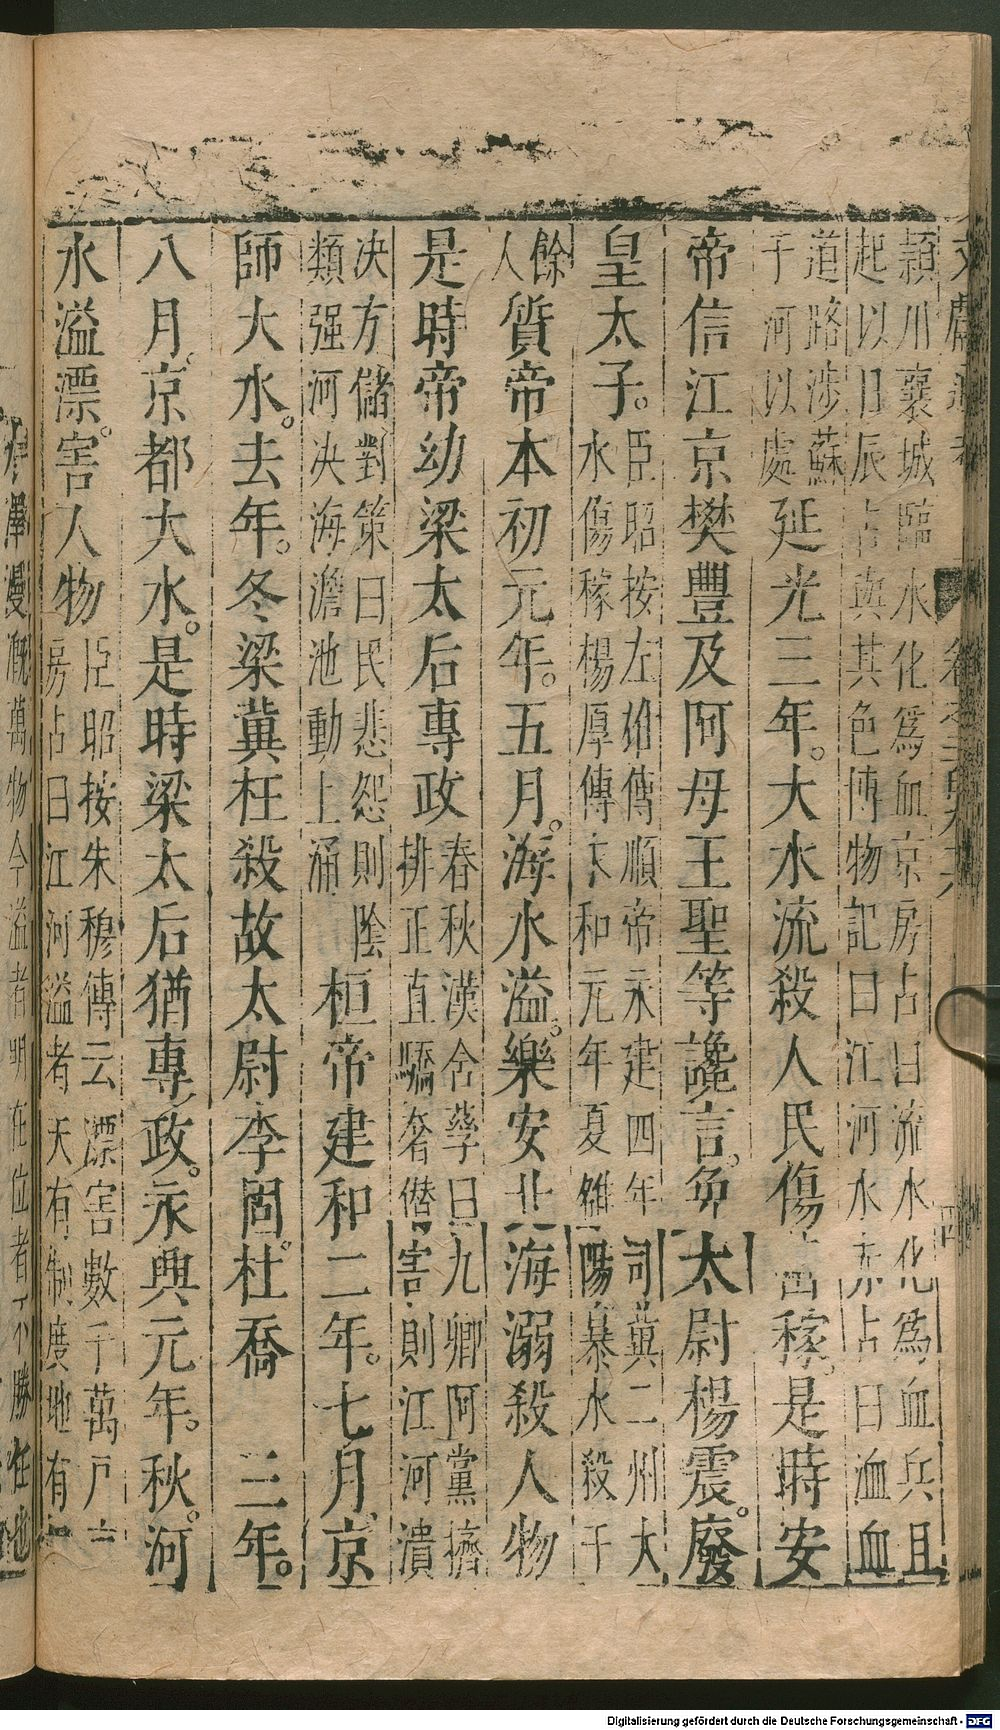 文獻通考
潁川襄城臨水化爲血京房占曰流水化爲血兵且
起以日辰占與其色博物記曰江河水赤占曰洫血
道路涉蘇
于河以處
延光三年。大水流殺人民傷苗稼。是時安
帝信江京樊豐及阿母王聖等讒言。免太尉楊震。廢
皇太子。
臣昭按左雄傳順帝永建四年司冀二州大
水傷稼楊厚傳永和元年夏雒陽暴水殺千
餘
人
質帝本初元年。五月。海水溢。樂安北海溺殺人物
是時帝幼梁太后專政
春秋漢含孳曰九卿阿黨擠
排正直驕奢僭害則江河潰
决方儲對策曰民悲怨則陰
類强河决海澹池動土涌
桓帝建和二年。七月。京
師大水。去年。冬梁冀枉殺故太尉李固。杜喬 三年。
八月。京都大水。是時梁太后猶專政。永興元年。秋。河
水溢漂。害人物
臣昭按朱穆傳云漂害數千萬戶
房占曰江河溢者天有制度地有
澤浸溉萬物今溢者明在位者不勝任也
Digitalisierung gefördert durch die Deutsche Forschungsgemeinschaft - DFG